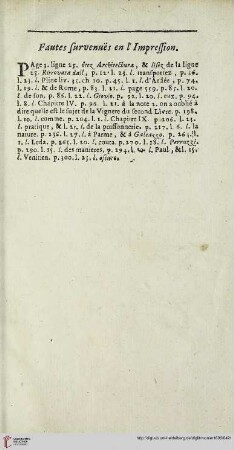 Fautes survenuës en l'Impression.
PAge 3. ligne 25. ôtez Architectura, & lisez de la ligne
25. Ritrovata dall', p. 12. l. 28. l. transportez, p. 16.
l. 23. l. Pline liv. 35. ch. 10. p. 45. l. 1. l. d'Arlée, p. 74.
l. 19. l. & de Rome, p. 83. l. 21. l. page 559. p. 85. l. 20.
l. de son, p. 86. l. 22. l. Giovio. p. 92. l. 20. l. eux, p. 94.
l. 8. l. Chapitre IV. p. 96. l. 21. à la note 2. on a oublié à
dire quelle est le sujet de la Vignete du second Livre. p. 198.
l. 10. l. comme. p. 204. l. 1. l. Chapitre IX. p. 206. l. 23.
l. pratique, & l. 25. l. de la poissonnerie. p. 217. l. 6. l. la
nature. p. 256. l. 17. l. à Parme, & à Galeazzo. p. 264. l.
1. l. Leda. p. 265. l. 20. l. touta. p. 270. l. 28. l. Peruzzi.
p. 290. l. 15. l. des manieres, p. 294. l. l. Paul, & l. 15.
l. Venitien. p. 300. l. 23. l. oscuro.